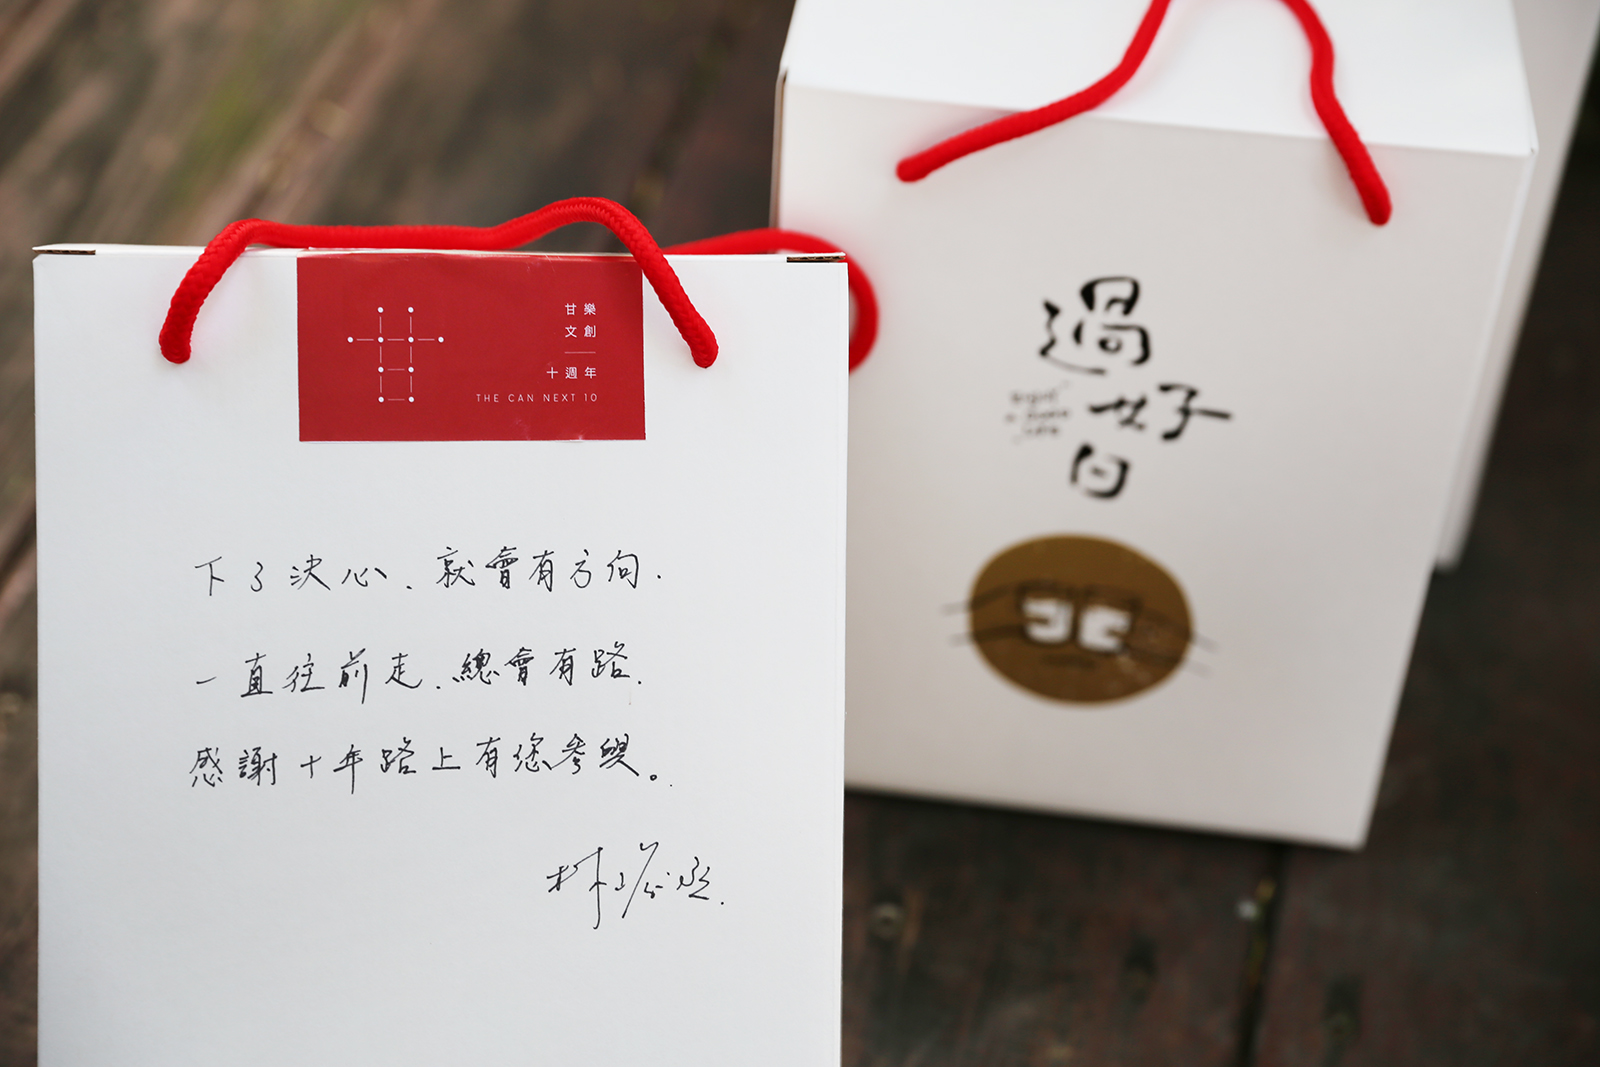 甘樂
文創
十週年
THE CAN NEXT 10
下了決心、就會有方向.
一直往前走、總會有路.
感謝十年路上有您參與。
林峻丞
過
好
日